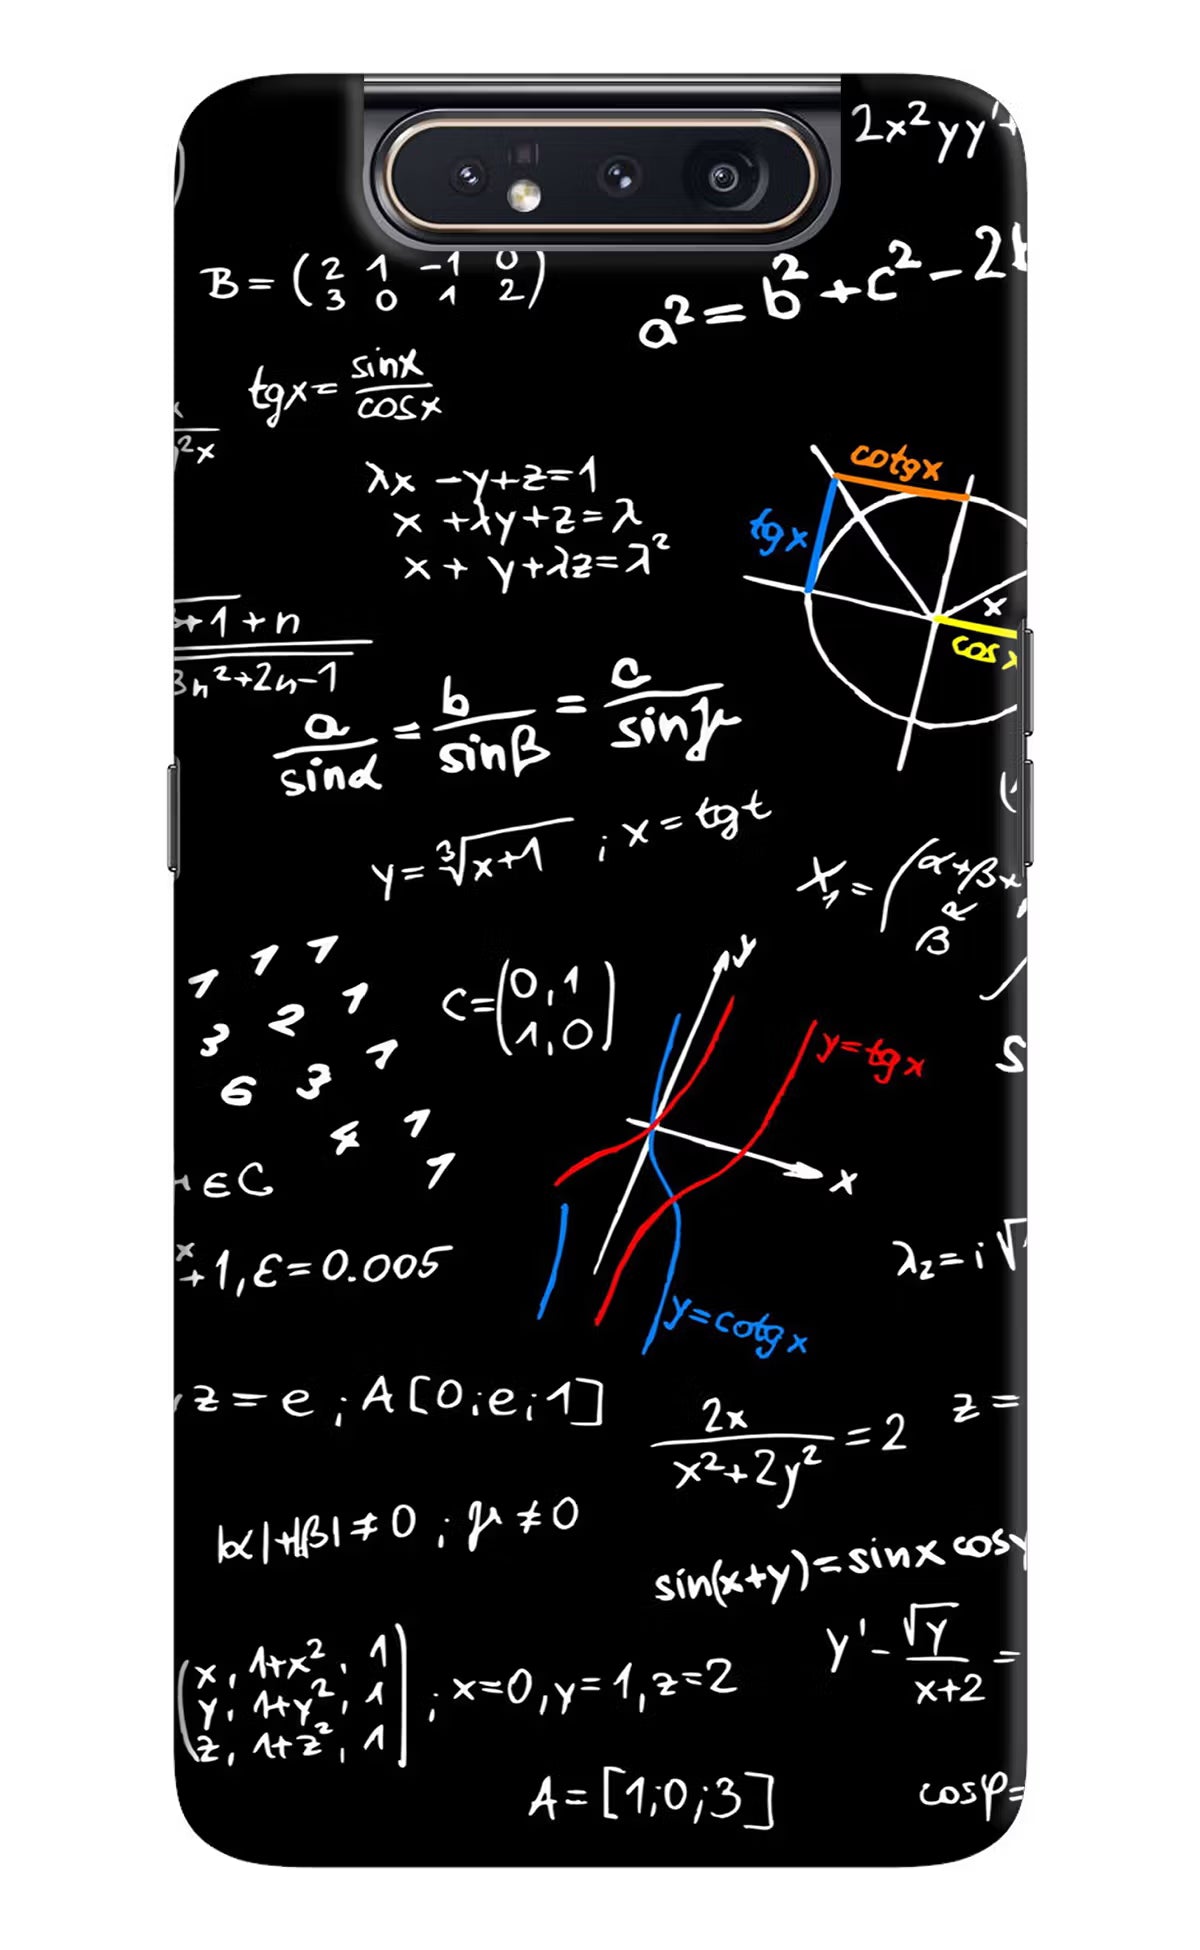 2x²yy'+
B = (2 1 -1 0
3 0 1 2)
a² = b² + c² - 2
tgx = sinx
cosx
²x
cotgx
λx - y + z = 1
x + λy + z = λ
x + y + λz = λ²
tgx
x
cosx
+1 + n
3n² + 2n - 1
a/sinα = b/sinβ = c/sinγ
y = ³√x+1 ; x = tgt
X₁ = (α+βx
β R
1 1 1
3 2 1
6 3 1
4 1
1
C = (0,1
1,0)
y
y=tgx
S
x
∈C
x
+1, ε = 0.005
λ₂ = i√
y=cotgx
z = e ; A[0;e;1]
2x
x²+2y² = 2
z =
|α|+|β| ≠ 0 ; μ ≠ 0
sin(x+y) = sinx cosy
y' - √y
x+2 =
(x, 1+x², 1
y, 1+y², 1
z, 1+z², 1) ; x=0, y=1, z=2
A = [1;0;3]
cosφ=